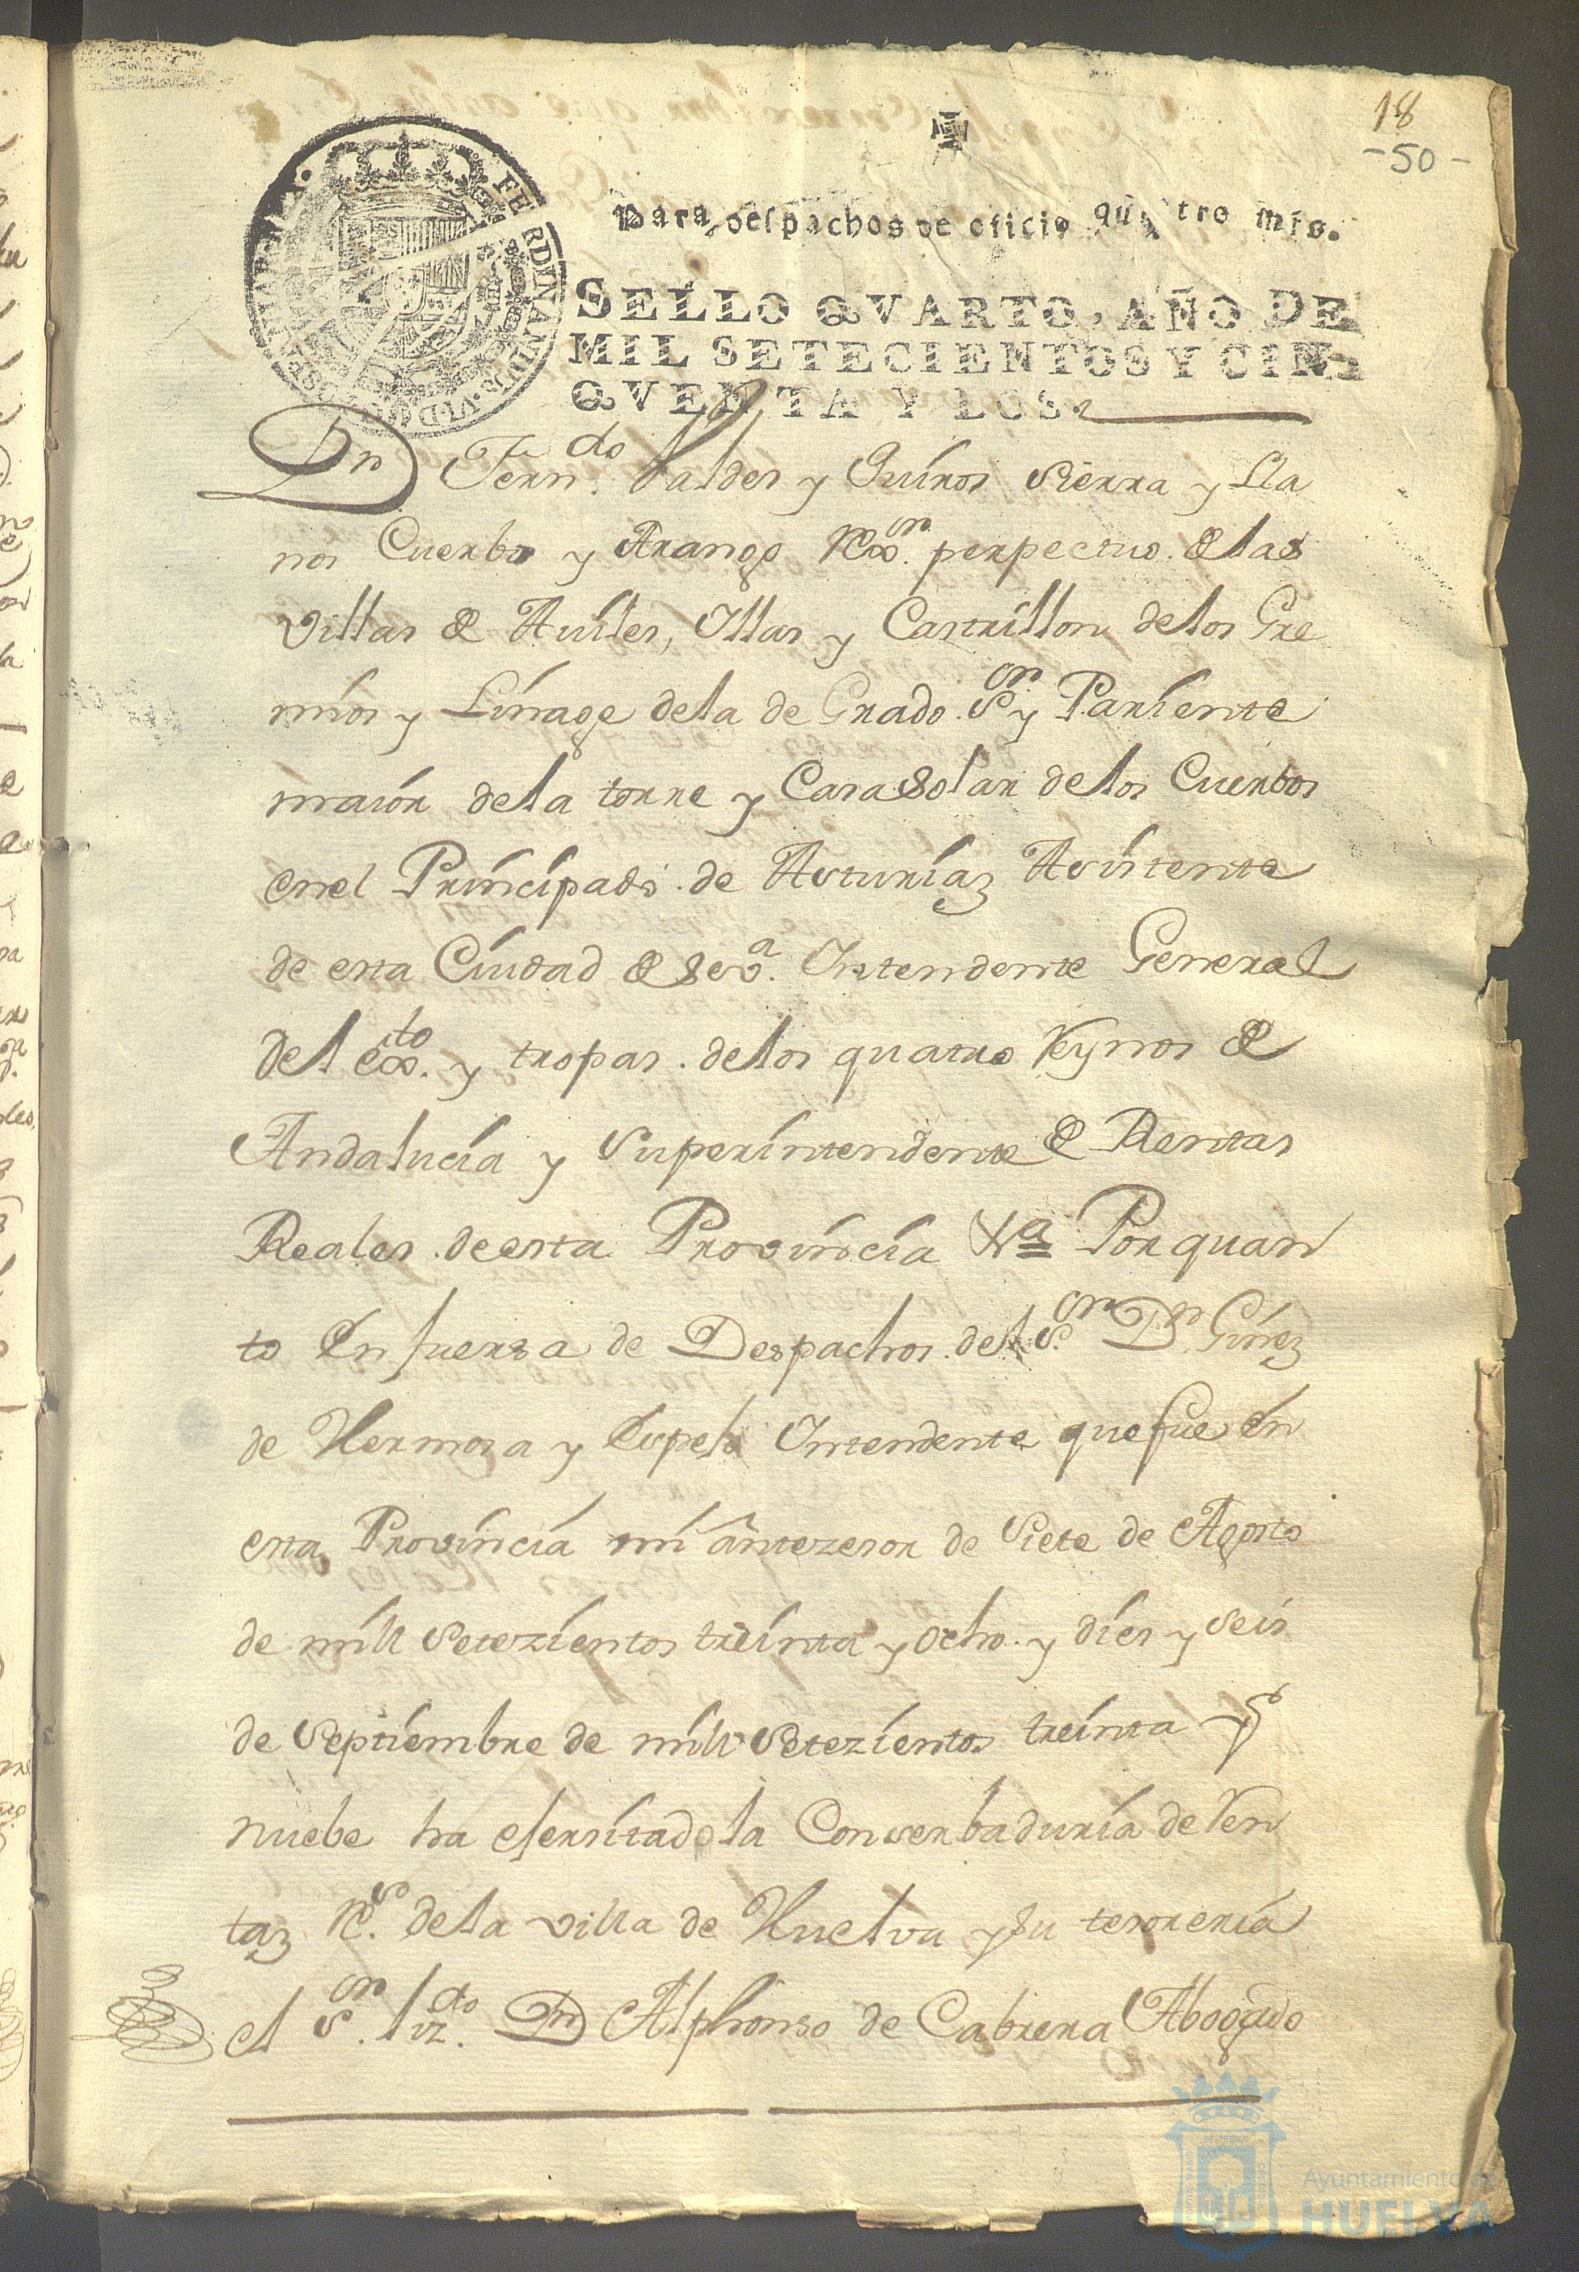 18
-50-
Para despachos de oficio quatro mrs.
SELLO QVARTO, AÑO DE
MIL SETECIENTOS Y CIN-
QVENTA Y DOS.
FERDINANDUS VI D G
Dn Ferndo. Valdes y Quiros Sierra y Lla
nos Cuerbo y Arango Rexor. perpectuo de las
Villas de Auiles, Yllas y Castrillon de los Gre
mios y Linage de la de Grado Sor. y Pariente
maior de la torre y Casa Solar de los Cuerbos
en el Principado de Asturiaz Asistente
de esta Ciudad de Seva. Yntendente General
del exto. y tropas de los quatro Reynos de
Andalucia y Superintendente de Rentas
Reales de esta Provincia Xa Por quan
to En fuersa de Despachos del Sor. Dn Ginez
de Hermosa y Espejo Yntendente que fue En
esta Provincia mi antezesor de Siete de Agosto
de mill Setezientos treinta y ocho y dies y seis
de Septiembre de mill Setezientos treinta y
nuebe ha elersitado la Conserbaduria de Ren
taz Rs. de la villa de Huelva y su tesoreria
el Sor. Lizdo. Dn Alphonso de Cabrera Abogado
Ayuntamiento de
HUELVA